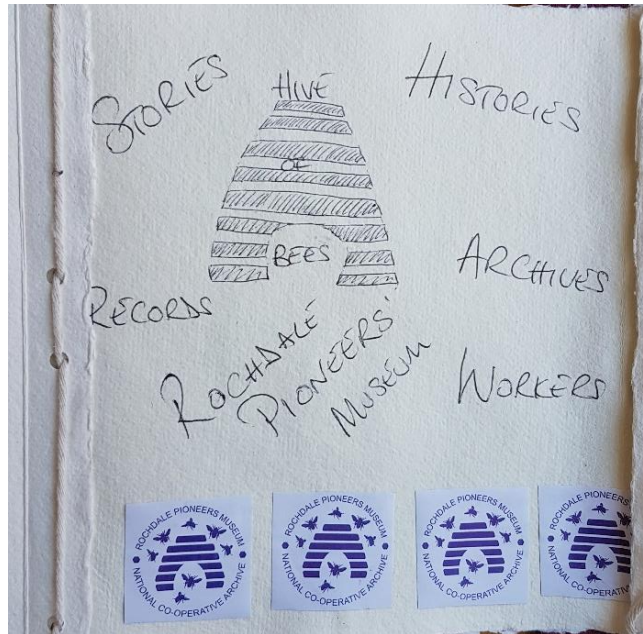 STORIES
HIVE
HISTORIES
OF
BEES
ARCHIVES
RECORDS
ROCHDALE
PIONEERS'
MUSEUM
WORKERS
ROCHDALE PIONEERS MUSEUM
NATIONAL CO-OPERATIVE ARCHIVE
ROCHDALE PIONEERS MUSEUM
NATIONAL CO-OPERATIVE ARCHIVE
ROCHDALE PIONEERS MUSEUM
NATIONAL CO-OPERATIVE ARCHIVE
ROCHDALE PIONEERS
NATIONAL CO-OPE